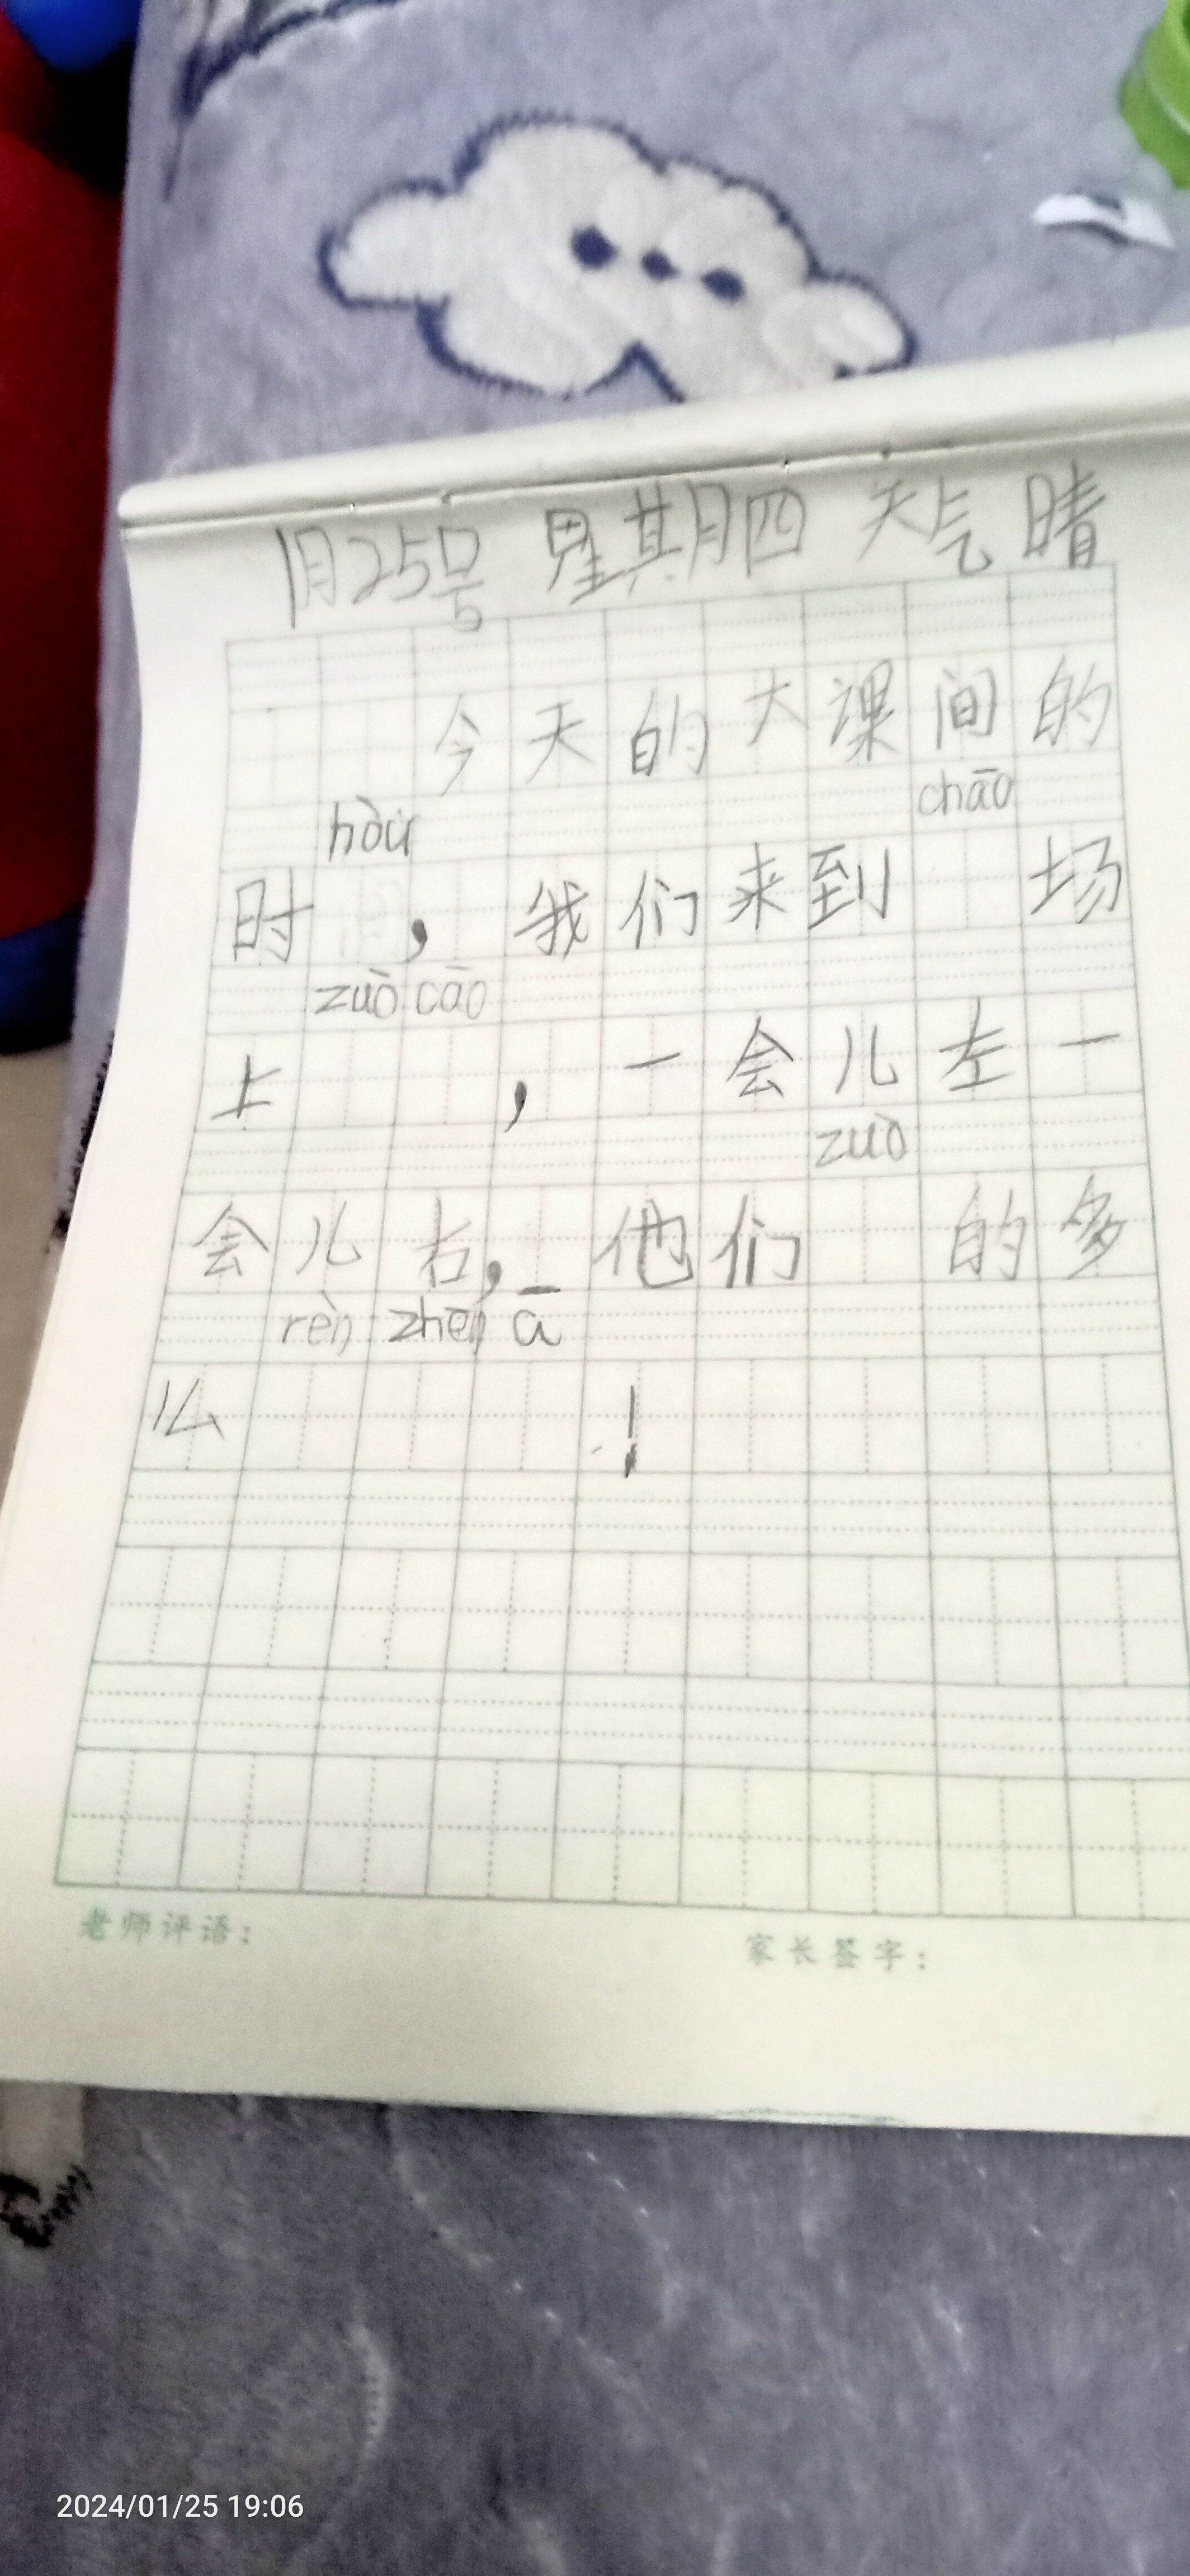 1月25号 星期四 天气晴
今天的大课间的
hòu chāo
时，我们来到 场
zuò cāo
上 ，一会儿左一
zuò
会儿右，他们 的多
rèn zhēn ā
么 ！
老师评语： 家长签字：
2024/01/25 19:06